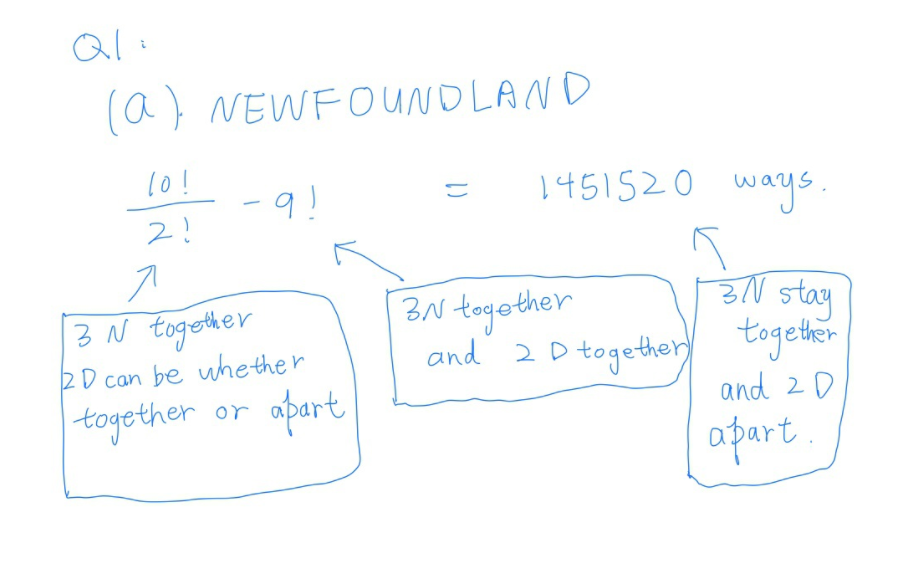 Q1:
(a). NEWFOUNDLAND
10!/2! - 9! = 1451520 ways.
3 N together
2D can be whether
together or apart
3N together
and 2 D together
3N stay
together
and 2 D
apart.